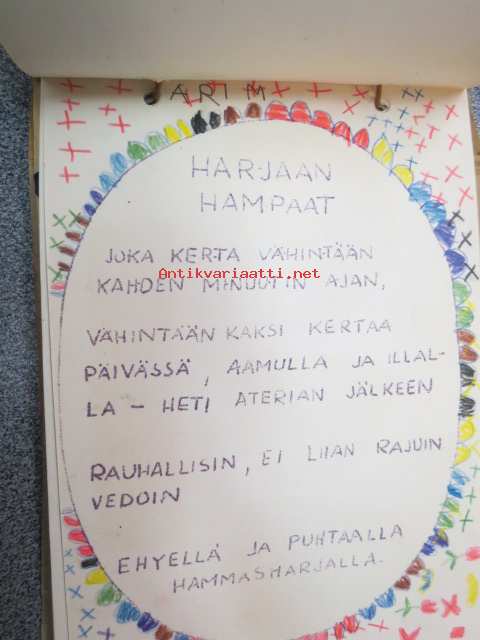 ARI M
HARJAAN
HAMPAAT
JOKA KERTA VÄHINTÄÄN
Antikvariaatti.net
KAHDEN MINUUTIN AJAN,
VÄHINTÄÄN KAKSI KERTAA
PÄIVÄSSÄ, AAMULLA JA ILLAL-
LA - HETI ATERIAN JÄLKEEN
RAUHALLISIN, EI LIIAN RAJUIN
VEDOIN
EHYELLÄ JA PUHTAALLA
HAMMASHARJALLA.